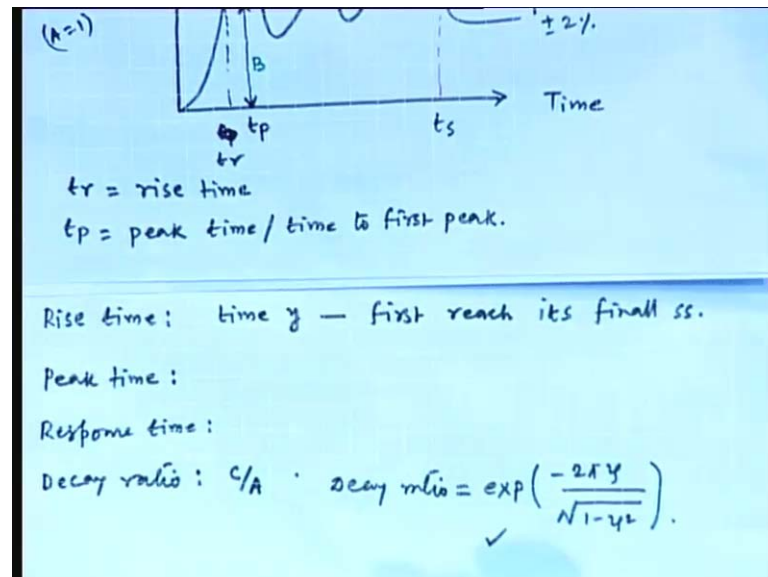 (A=1)
±2%.
B
Time
tp
ts
tr
tr = rise time
tp = peak time / time to first peak.
Rise time : time y — first reach its finall ss.
Peak time :
Response time :
Decay ratio : C/A . Decay ratio = exp(-2πψ/√1-ψ²).